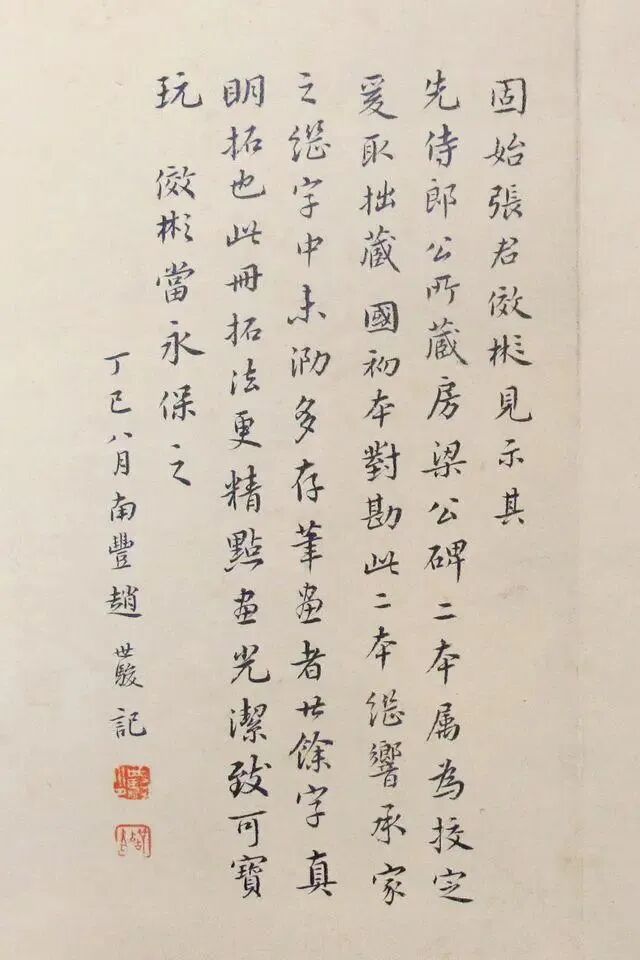 固始張君儆彬見示其
先侍郎公所藏房梁公碑二本属為挍定
爰取拙藏國初本對勘此二本繼響承家
之繼字中未泐多存筆畫者廿餘字真
明拓也此冊拓法更精點畫光潔致可寶
玩 儆彬當永保之
丁巳八月南豐趙世駿記